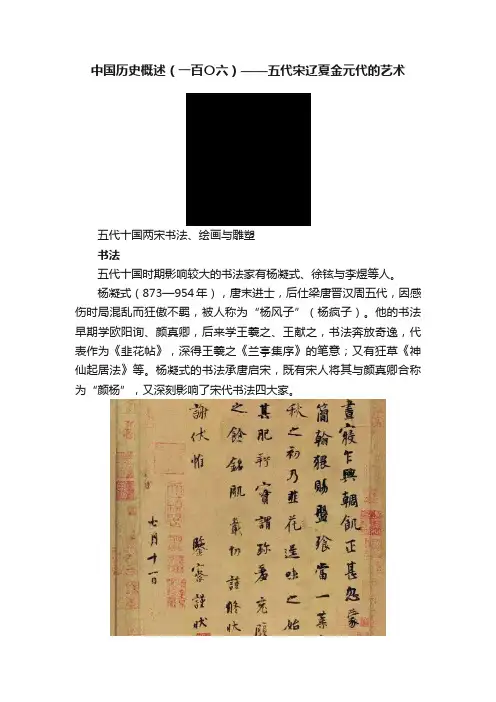 中国历史概述（一百〇六）——五代宋辽夏金元代的艺术
五代十国两宋书法、绘画与雕塑
书法
五代十国时期影响较大的书法家有杨凝式、徐铉与李煜等人。
杨凝式（873—954年），唐末进士，后仕梁唐晋汉周五代，因感
伤时局混乱而狂傲不羁，被人称为“杨风子”（杨疯子）。他的书法
早期学欧阳询、颜真卿，后来学王羲之、王献之，书法奔放奇逸，代
表作为《韭花帖》，深得王羲之《兰亭集序》的笔意；又有狂草《神
仙起居法》等。杨凝式的书法承唐启宋，既有宋人将其与颜真卿合称
为“颜杨”，又深刻影响了宋代书法四大家。
晝寢乍興輖飢正甚忽蒙
簡翰猥賜盤飧當一葉
秋之初乃韭花逞味之始
其肥羜實謂珍羞充腹
之餘銘肌載切謹修狀
謝伏惟 鑒察謹狀
七月十一日